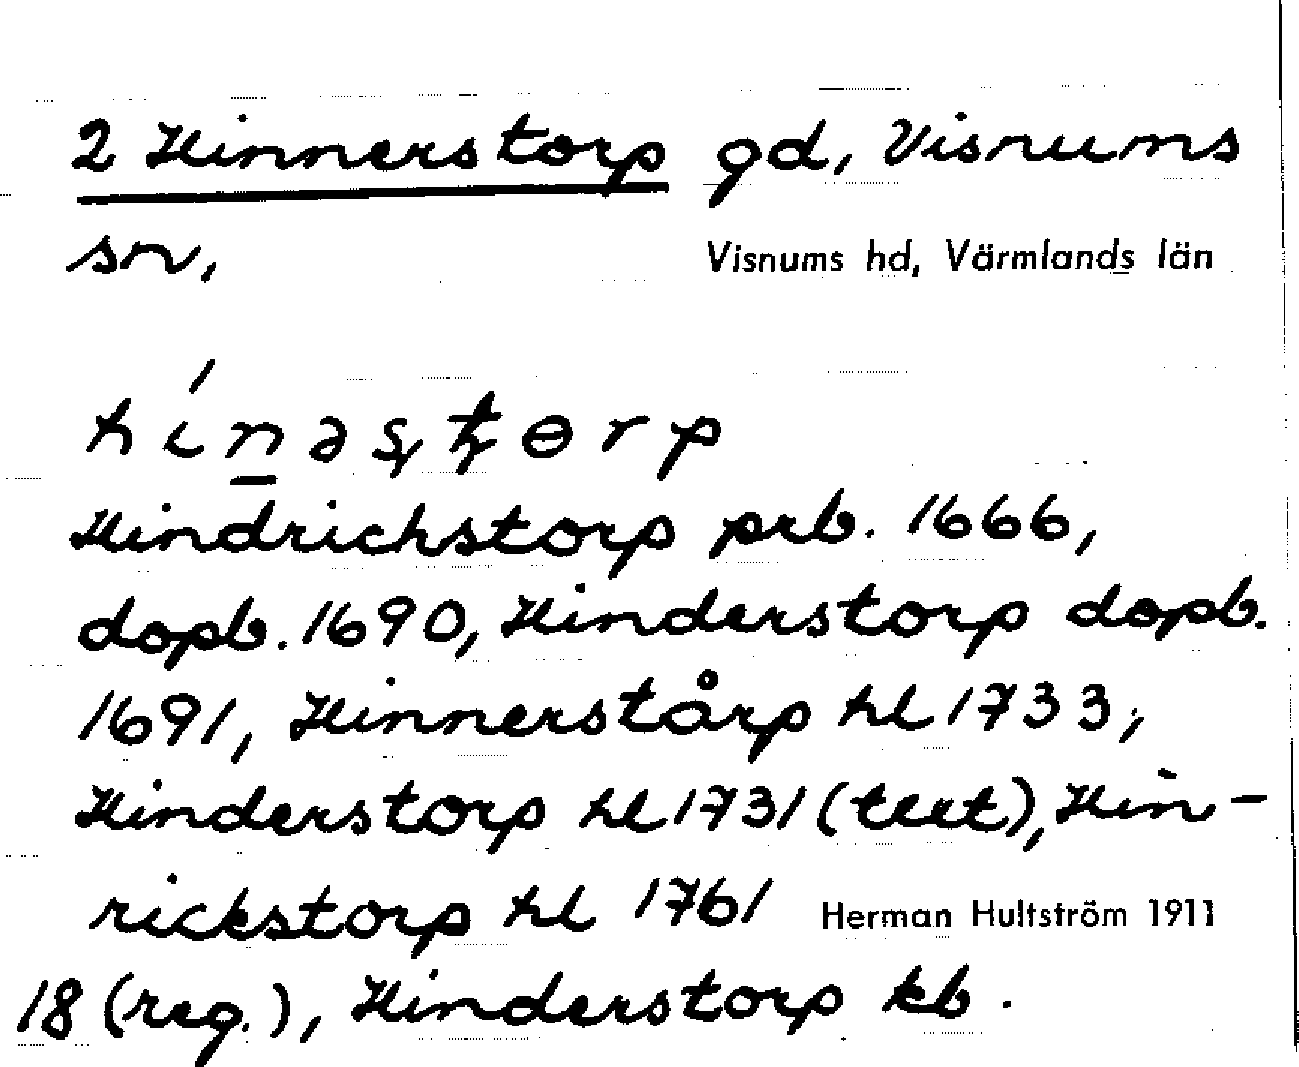 2 Hinnerstorp gd, Visnums
sn,
Visnums hd, Värmlands län
hínəsţorp
Hindrichstorp prb. 1666,
dopb. 1690, Hinderstorp dopb.
1691, Hinnerstårp hl 1733,
Hinderstorp hl 1731 (text), Hin-
rickstorp hl 1761
Herman Hultström 1911
18 (reg.), Hinderstorp kb.